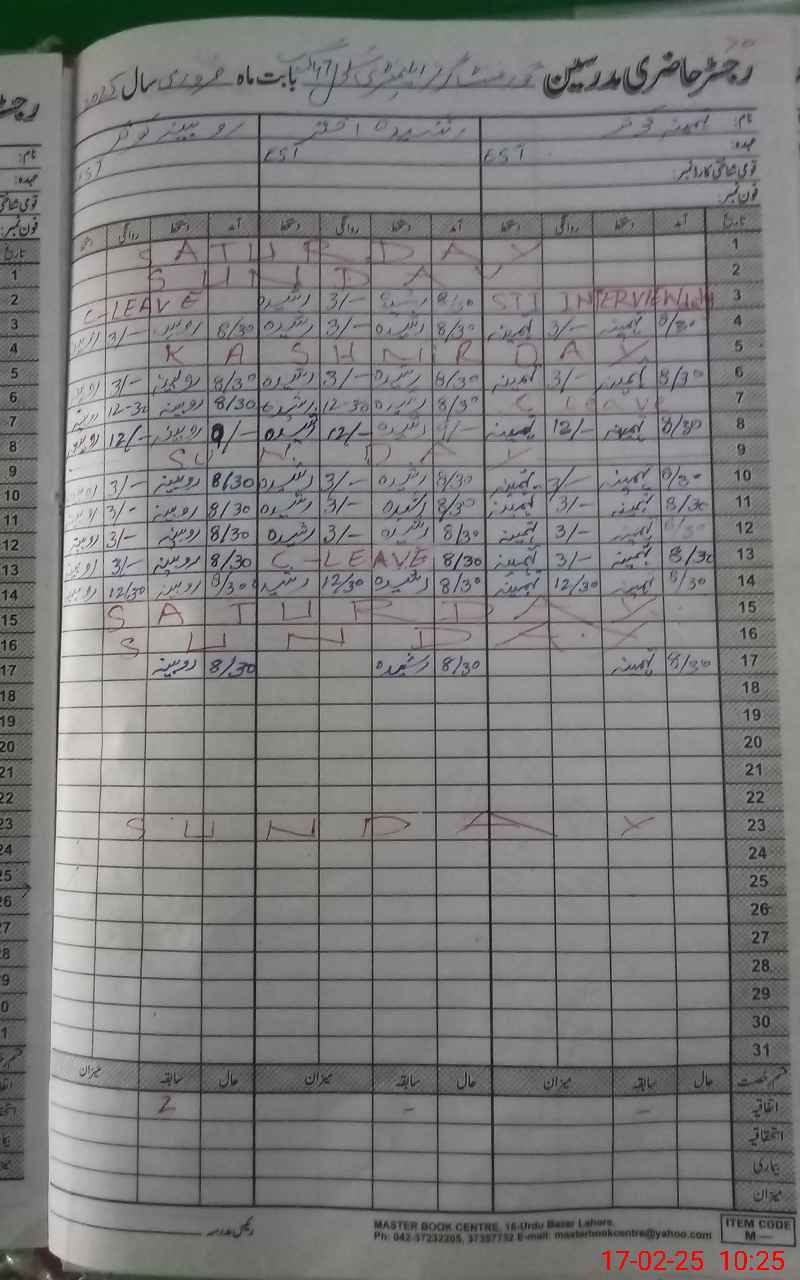 رجسٹر حاضری مدرسین گورنمنٹ گرلز ایلیمنٹری سکول بابت ماہ فروری سال
نام: ثمینہ کوثر رشیدہ اختر روبینہ کوثر
عہدہ: EST EST EST
قومی شناختی کارڈ نمبر:
فون نمبر:
تاریخ آمد دستخط روانگی دستخط آمد دستخط روانگی دستخط آمد دستخط روانگی دستخط
1 SATURDAY
2 SUNDAY
3 STI INTERVIEW 8/30 رشیدہ 3/- رشیدہ C-LEAVE
4 8/30 ثمینہ 3/- ثمینہ 8/30 رشیدہ 3/- رشیدہ 8/30 روبینہ 3/- روبینہ
5 KASHMIR DAY
6 8/30 ثمینہ 3/- ثمینہ 8/30 رشیدہ 3/- رشیدہ 8/30 روبینہ 3/- روبینہ
7 C Leave 8/30 رشیدہ 12-30 رشیدہ 8/30 روبینہ 12-30 روبینہ
8 8/30 ثمینہ 12/- ثمینہ رشیدہ 12/- رشیدہ 9/- روبینہ 12/- روبینہ
9 SUNDAY
10 8/30 ثمینہ 3/- ثمینہ 8/30 رشیدہ 3/- رشیدہ 8/30 روبینہ 3/- روبینہ
11 8/30 ثمینہ 3/- ثمینہ 8/30 رشیدہ 3/- رشیدہ 8/30 روبینہ 3/- روبینہ
12 8/30 ثمینہ 3/- ثمینہ 8/30 رشیدہ 3/- رشیدہ 8/30 روبینہ 3/- روبینہ
13 8/30 ثمینہ 3/- ثمینہ 8/30 C-LEAVE 8/30 روبینہ 3/- روبینہ
14 8/30 ثمینہ 12/30 ثمینہ 8/30 رشیدہ 12/30 رشیدہ 8/30 روبینہ 12/30 روبینہ
15 SATURDAY
16 SUNDAY
17 8/30 ثمینہ 8/30 رشیدہ 8/30 روبینہ
18
19
20
21
22
23 SUNDAY
24
25
26
27
28
29
30
31
قسم رخصت حال سابقہ میزان حال سابقہ میزان حال سابقہ میزان
اتفاقیہ - - 2
استحقاقیہ
بیماری
میزان
رئیس مدرسہ
MASTER BOOK CENTRE, 16-Urdu Bazar Lahore.
Ph: 042-37232205, 37357752 E-mail: masterbookcentre@yahoo.com
ITEM CODE
M —
17-02-25 10:25